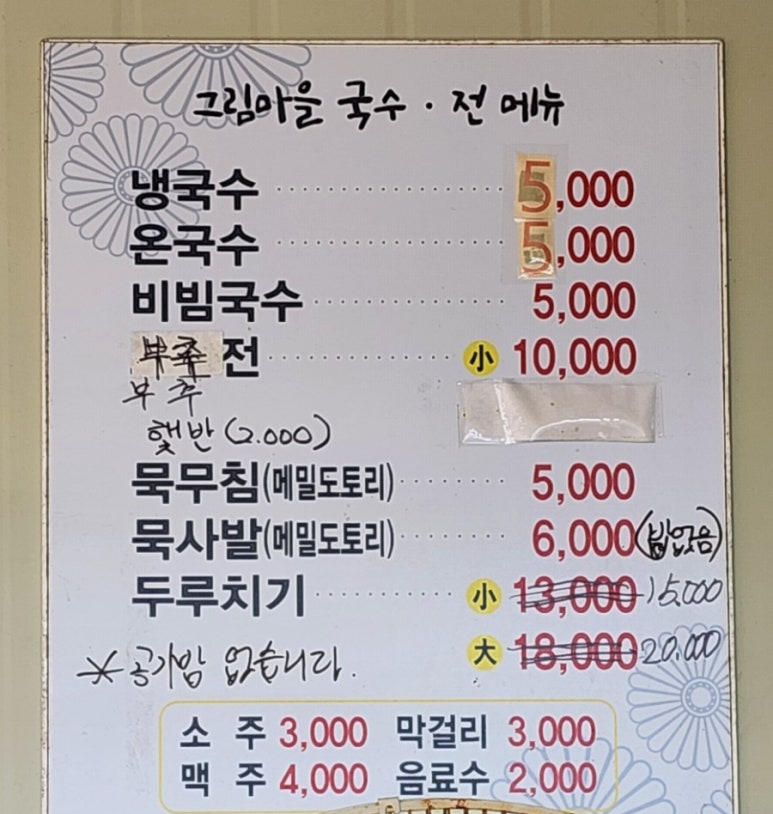 그림마을 국수 · 전 메뉴
냉국수 5,000
온국수 5,000
비빔국수 5,000
부추 전 小 10,000
부추
햇반 (2.000)
묵무침(메밀도토리) 5,000
묵사발(메밀도토리) 6,000 (밥없음)
두루치기 小 13,000 15.000
大 18,000 20.000
* 공기밥 없습니다.
소 주 3,000 막걸리 3,000
맥 주 4,000 음료수 2,000